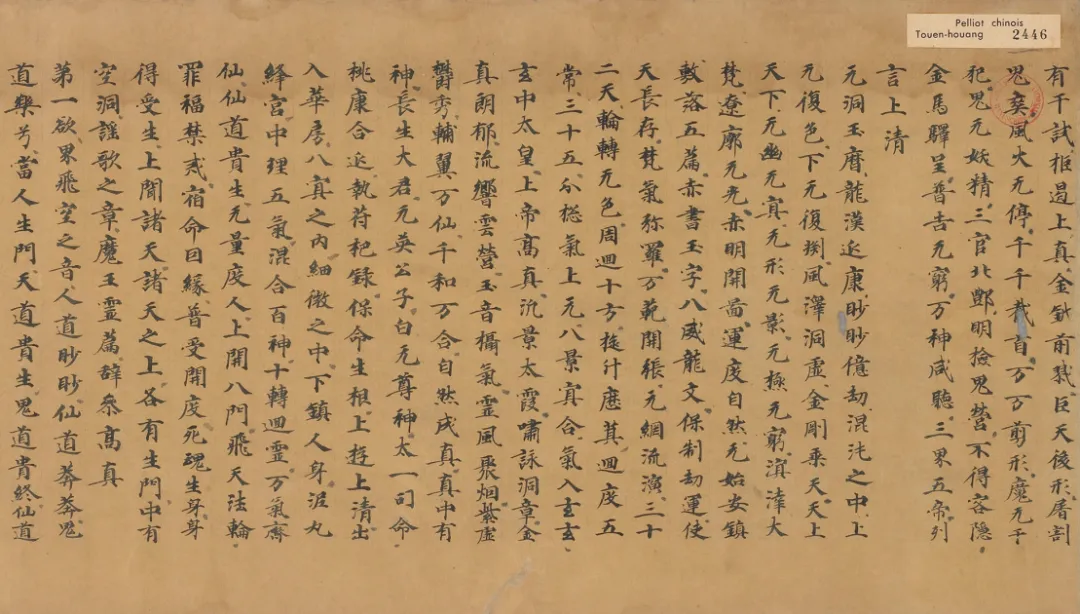 Pelliot chinois
Touen-houang 2446
有干試拒過上真金鉞前戮巨天後形屠割
鬼爽風火无停千千截首万万剪形魔无干
犯鬼无妖精三官北酆明撿鬼營不得容隱
金馬驛呈普告无窮万神咸聽三界五帝列
言上清
元洞玉曆龍漢延康眇眇億劫混沌之中上
无復色下无復淵風澤洞虛金剛乘天天上
天下无幽无冥无形无影无極无窮溟涬大
梵遼廓无光赤明開啚運度自然元始安鎮
敷落五篇赤書玉字八威龍文保制劫運使
天長存梵氣弥羅万範開張元綱流演三十
二天輪轉无色周迴十方旋斗歷箕迴度五
常三十五分総氣上元八景冥合氣入玄玄
玄中太皇上帝高真汎景太霞嘯詠洞章金
真朗郁流響雲營玉音攝氣靈風聚烟紫虛
欝秀輔翼万仙千和万合自然成真真中有
神長生大君无英公子白元尊神太一司命
桃康合延執符把録保命生根上遊上清出
入華房八冥之內細微之中下鎮人身泥丸
絳宮中理五氣混合百神十轉迴靈万氣齊
仙仙道貴生无量度人上開八門飛天法輪
罪福禁戒宿命因緣普受開度死魂生身身
得受生上聞諸天諸天之上各有生門中有
空洞謠歌之章魔王靈篇辭叅高真
第一欲界飛空之音人道眇眇仙道莽莽鬼
道樂兮當人生門天道貴生鬼道貴終仙道